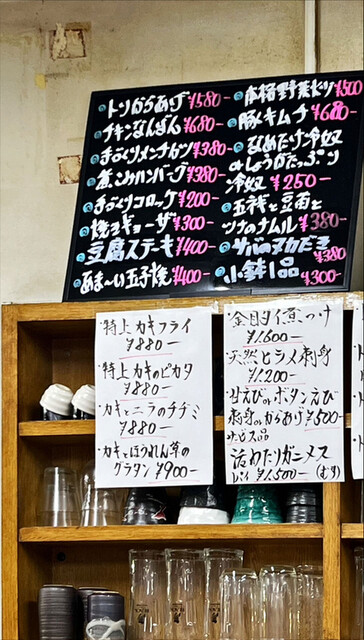 トリからあげ ¥580-
チキンなんばん ¥680-
手づくりメンチカツ ¥380-
煮こみハンバーグ ¥380-
手づくりコロッケ ¥200-
焼きギョーザ ¥300-
豆腐ステーキ ¥400-
あま〜い玉子焼 ¥400-
本格野菜ピザ ¥500
豚キムチ ¥680-
なめたけ冷奴
しょうがたっぷり
冷奴 ¥250-
豆苗と
ツナのナムル ¥380-
サバのヌカだき
¥380
小鉢1品
¥300-
・特上カキフライ
¥880-
・特上カキのピカタ
¥880-
・カキとニラのチヂミ
¥880-
・カキとほうれん草の
グラタン ¥900-
・金目タイ煮つけ
¥1,600-
・天然ヒラメ刺身
¥1,200-
・甘えびorボタンえび
刺身orからあげ ¥500-
サービス品
・活わたりガニメス
¥1,500-(むし)